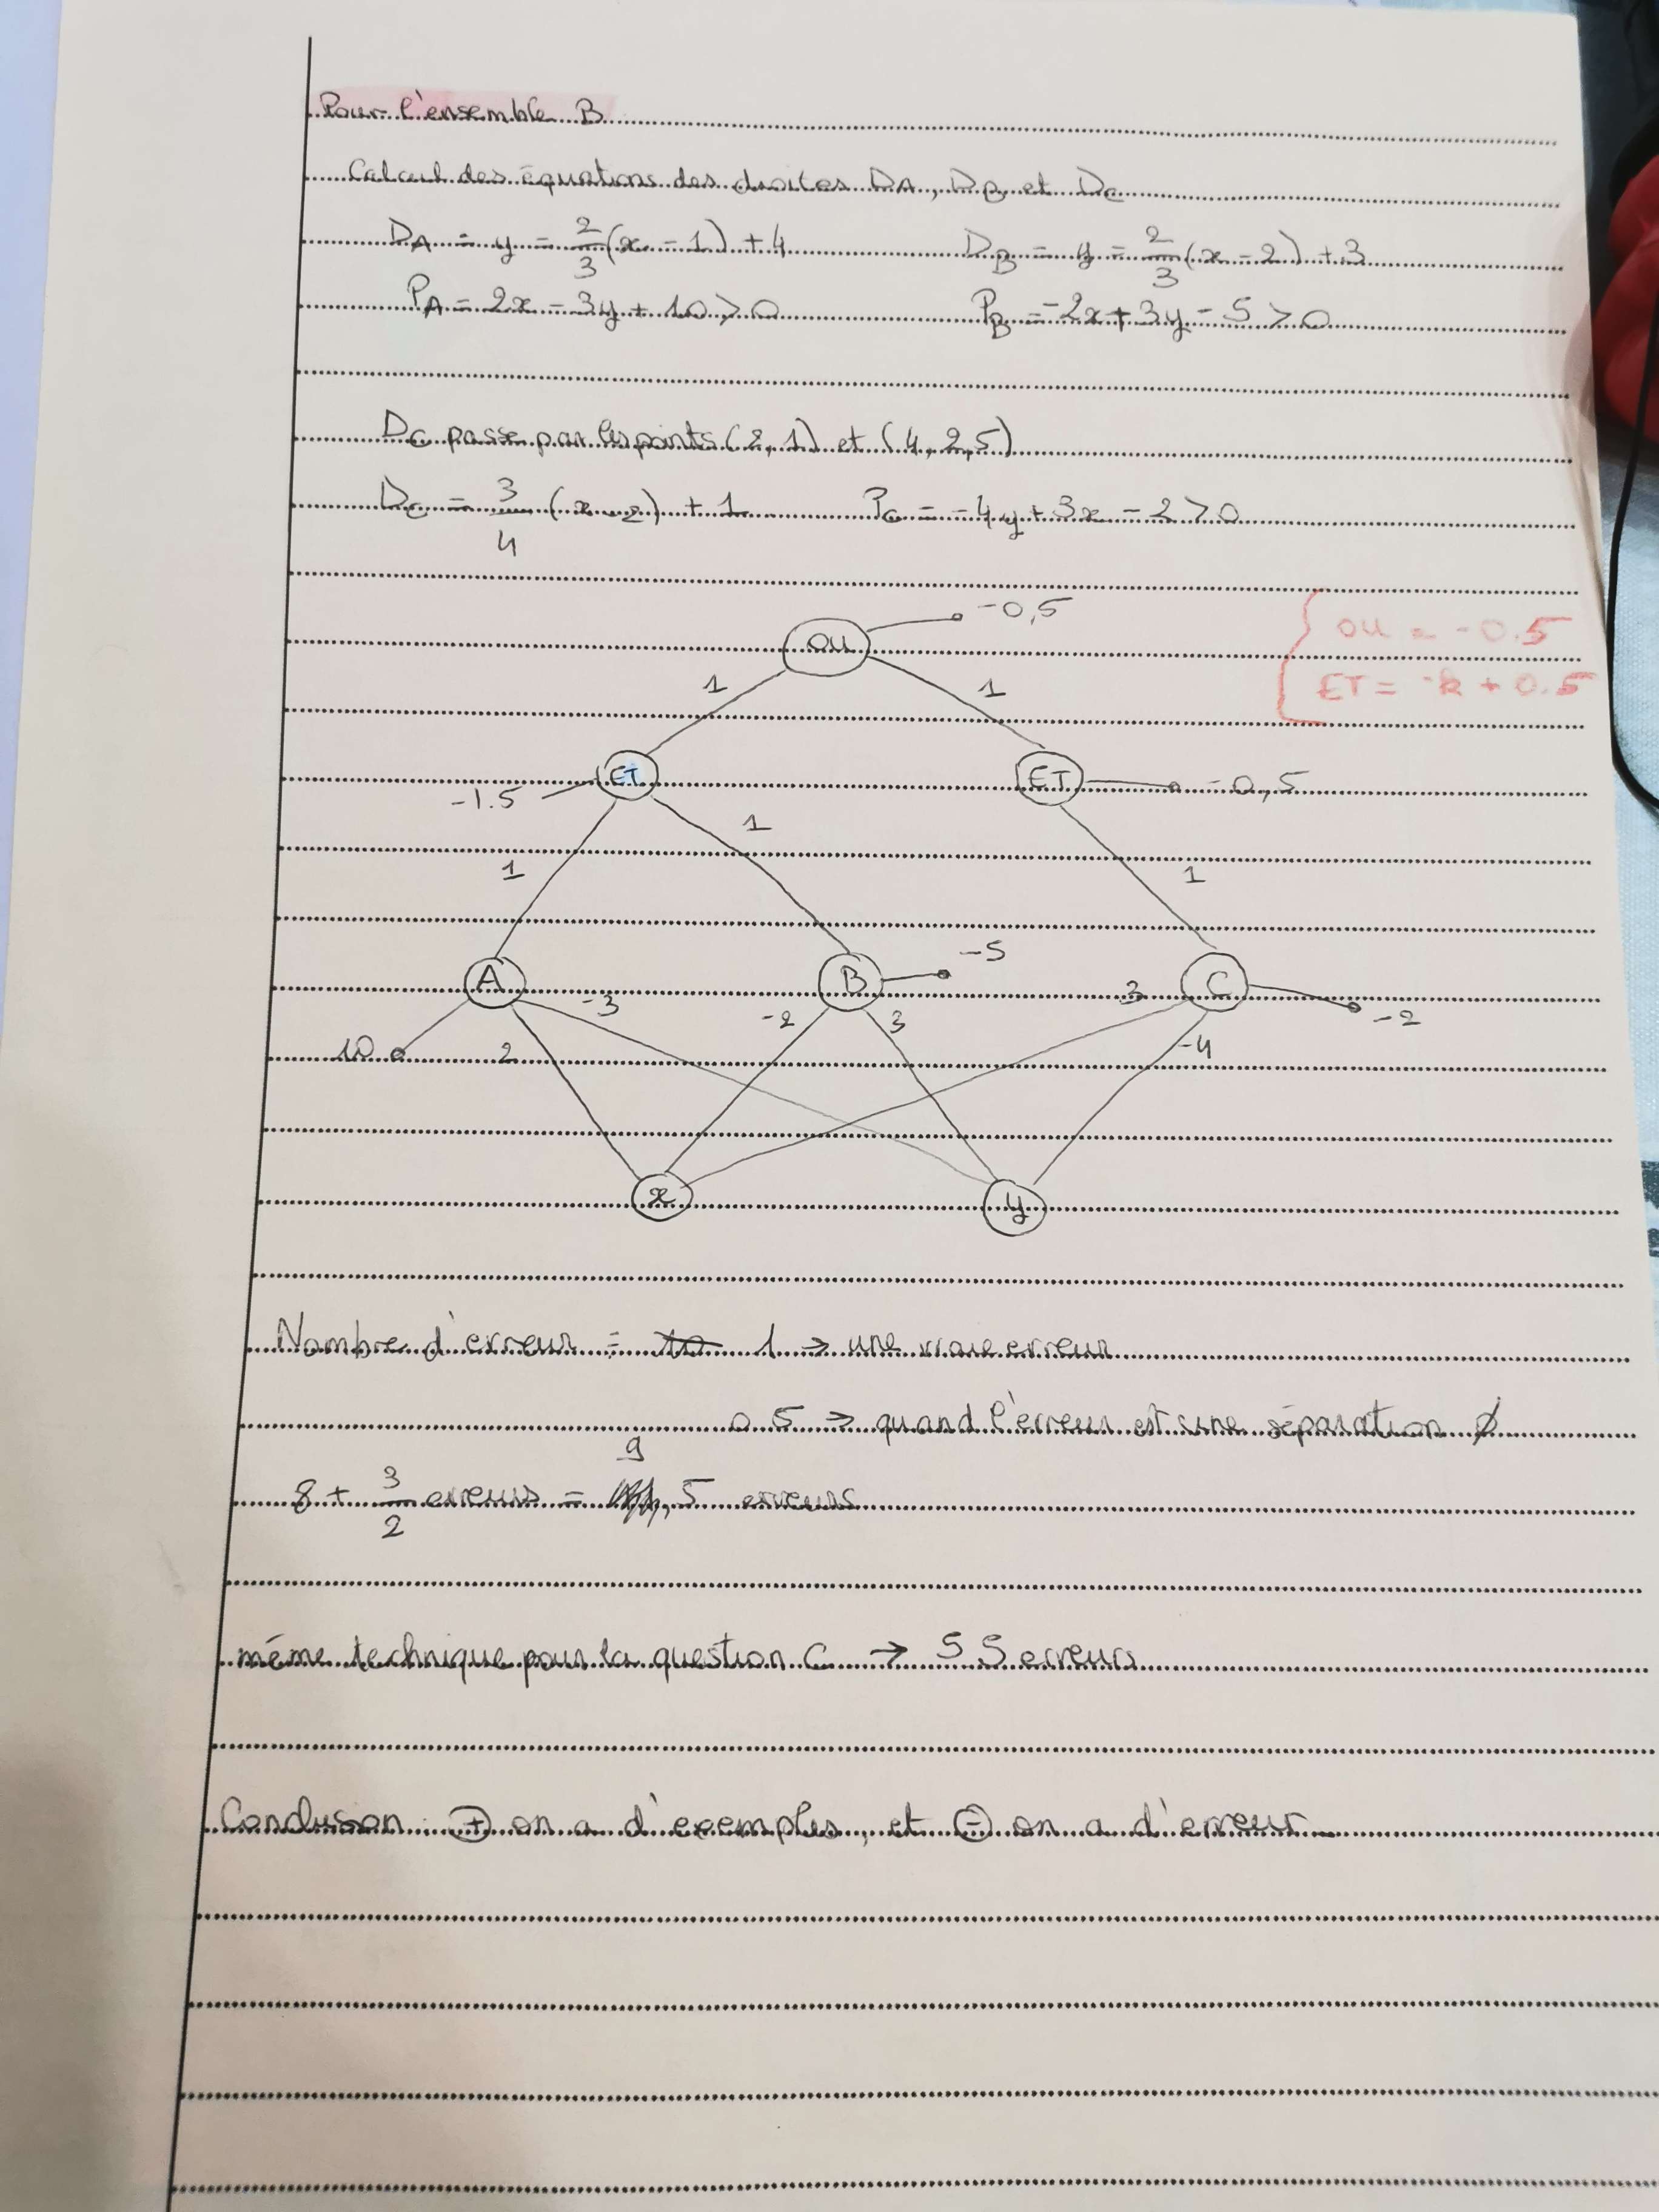 Pour l'ensemble B
Calcul des équations des droites DA, DB, et DC
DA = y = 2/3 (x - 1) + 4 DB = y = 2/3 (x - 2) + 3
PA = 2x - 3y + 10 > 0 PB = -2x + 3y - 5 > 0
DC passe par les points (2, 1) et (4, 2,5)
DC = 3/4 (x - 2) + 1 PC = -4y + 3x - 2 > 0
OU -0,5
OU = -0.5
1 1
ET = -k + 0.5
ET ET -0,5
-1.5
1
1 1
A B -5 C
-3 -2 3 3 -2
10 2 -4
x y
Nombre d'erreur = 1 → une vraie erreur
0.5 → quand l'erreur est une séparation
8 + 3/2 erreurs = 9,5 erreurs
même technique pour la question C → 5 5 erreurs
Conclusion : + on a d'exemples, et - on a d'erreur